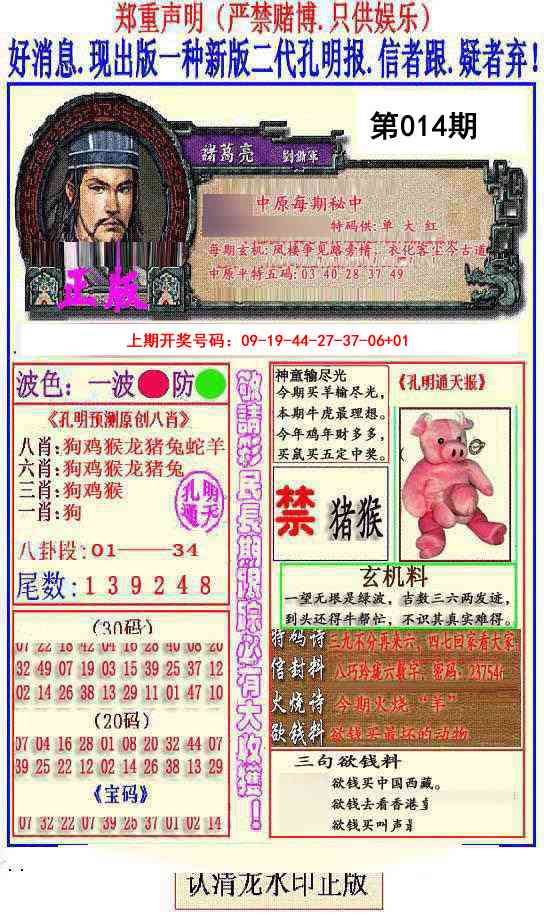 郑重声明（严禁赌博.只供娱乐）
好消息.现出版一种新版二代孔明报.信者跟.疑者弃！
第014期
諸葛亮
中原每期秘中
特码供: 单 大 红
每期玄机: 凤楼争见路旁情，衣化客尘今古道
中原平特五码: 03 40 28 37 49
正版
上期开奖号码：09-19-44-27-37-06+01
波色：一波 防
《孔明预测原创八肖》
八肖:狗鸡猴龙猪兔蛇羊
六肖:狗鸡猴龙猪兔
三肖:狗鸡猴
一肖:狗
孔明通天
八卦段:01——34
尾数:139248
(30码)
07 22 18 42 04 16 28 40 08 20
32 49 07 19 03 15 39 25 37 12
02 14 26 38 13 29 11 01 47 10
(20码)
07 04 16 28 01 08 20 32 44 07
39 25 22 12 02 14 26 38 13 29
《宝码》
07 32 22 07 39 25 37 01 02 14
敬請彩民長期跟踪必有大收獲！
神童输尽光
今期买羊输尽光，
本期牛虎最理想。
今年鸡年财多多，
买鼠买五定中奖。
《孔明通天报》
禁 猪猴
玄机料
一望无垠是绿波，吉数三六两发迹，
到头还得牛帮忙，不识其真实难得。
特码诗 三九不分再来六，四七回家看大家
信封料 八巧玲珑六数字，密码：23754
火烧诗 今期火烧“羊”
欲钱料 欲钱买最坏的动物
三句欲钱料
欲钱买中国西藏。
欲钱去看香港
欲钱买叫声
认清龙水印正版